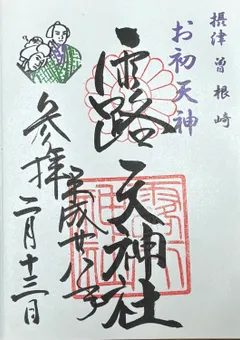 摂津 曽根崎
お初天神
露 天神社
平成廿八年
参拝 二月十三日